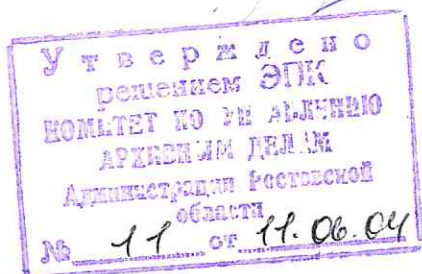 Утверждено
решением ЭПК
КОМИТЕТ ПО
АРХИВНЫМ ДЕЛАМ
Администрации Ростовской
области
№ 11 от 11.06.04